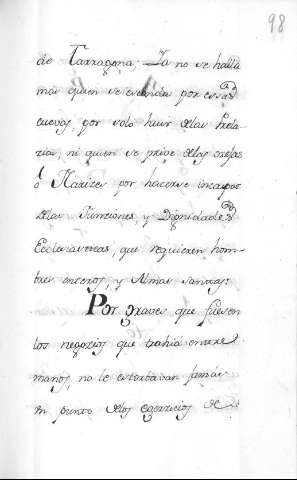 98
de Tarragona; Ya no se halla
mas quien se esconda por esas
cuevas, por solo huir delas Prela-
zias, ni quien se prive delas orejas
ò Narizes por hacerse incapaz
delas Funciones, y Dignidades
Ecclesiasticas, que requieren hom-
bres enteros, y Almas santas.
Por graves que fuesen
los negozios que trahia entre
manos, no le estorbavan jamàs
un punto delos egercicios de